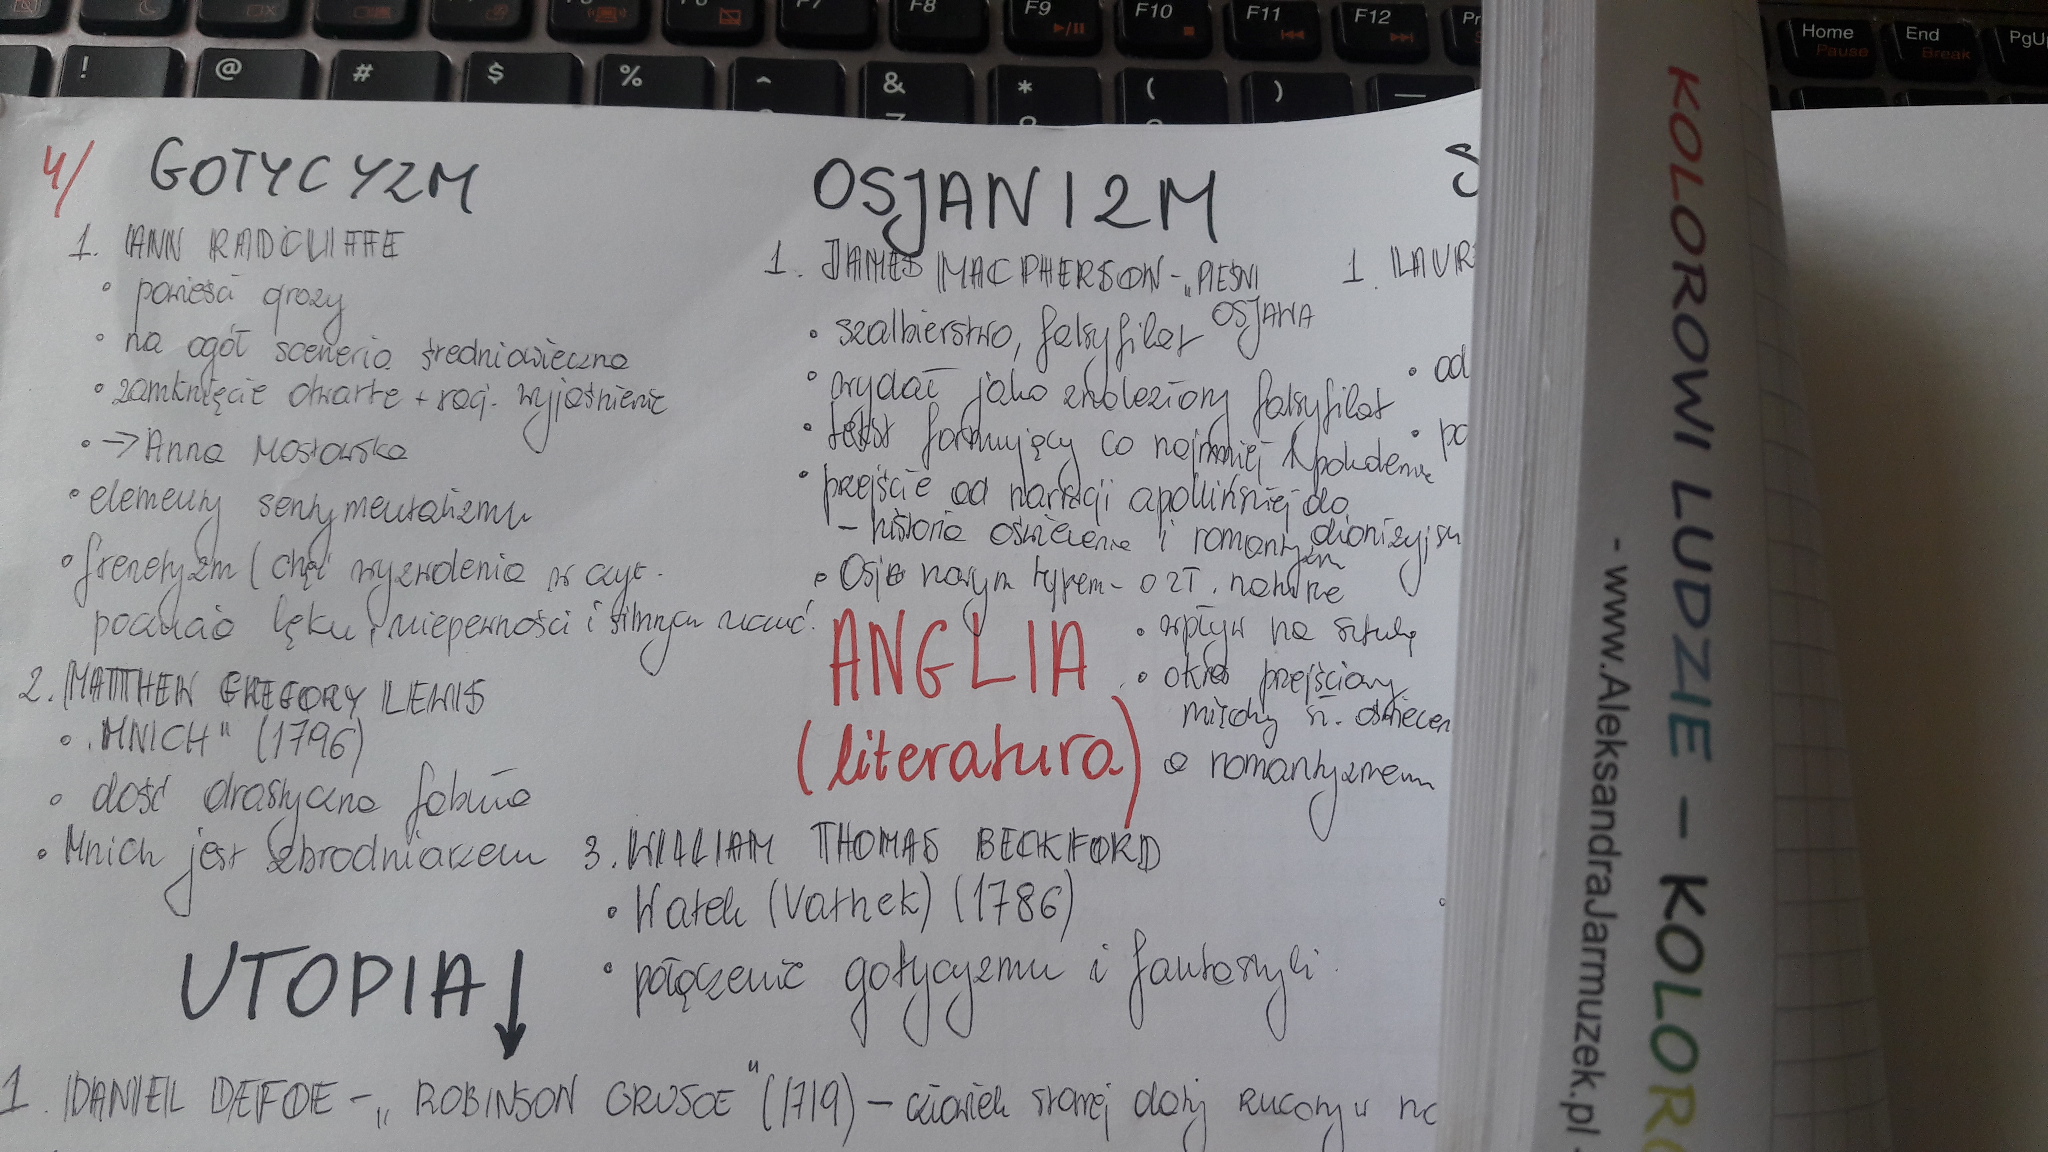 F7 F8 F9 F10 F11 F12 Pr
Home Pause End Break PgUp
! @ # $ % ^ & * ( ) —
4/ GOTYCYZM
1. ANN RADCLIFFE
• powieść grozy
• na ogół sceneria średniowieczna
• zamknięcie otwarte + racj. wyjaśnienie
• → Anna Mostowska
• elementy sentymentalizmu
• frenetyzm (chęć wyzwolenia w czyt.
poczucia lęku, niepewności i silnych uczuć.
2. MATTHEW GREGORY LEWIS
• „MNICH" (1796)
• dość drastyczna fabuła
• Mnich jest zbrodniarzem
OSJANIZM
1. JAMES MACPHERSON - „PIEŚNI
OSJANA
• szalbierstwo, falsyfikat
• wydał jako znaleziony falsyfikat
• tekst formujący co najmniej 1 pokolenie
• przejście od narracji apollińskiej do
dionizyjsk
- historia oświecenia i romantyzm
• Osja nowym typem - o zł. naturze
• wpływ na sztukę
• okres przejściowy
między k. oświecen
a romantyzmem
S
1. LAUR
• od
• po
ANGLIA
(literatura)
3. WILLIAM THOMAS BECKFORD
• Watek (Vathek) (1786)
• połączenie gotycyzmu i fantastyki.
UTOPIA ↓
1. DANIEL DEFOE - „ROBINSON CRUSOE" (1719) - człowiek starej daty rzucony w no
KOLOROWI LUDZIE – KOLORO
- www.AleksandraJarmuzek.pl -